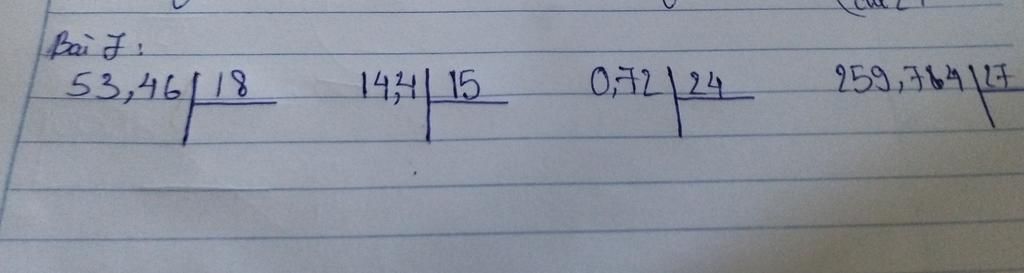 Bài 7:
53,46 | 18 14,4 | 15 0,72 | 24 259,764 | 27